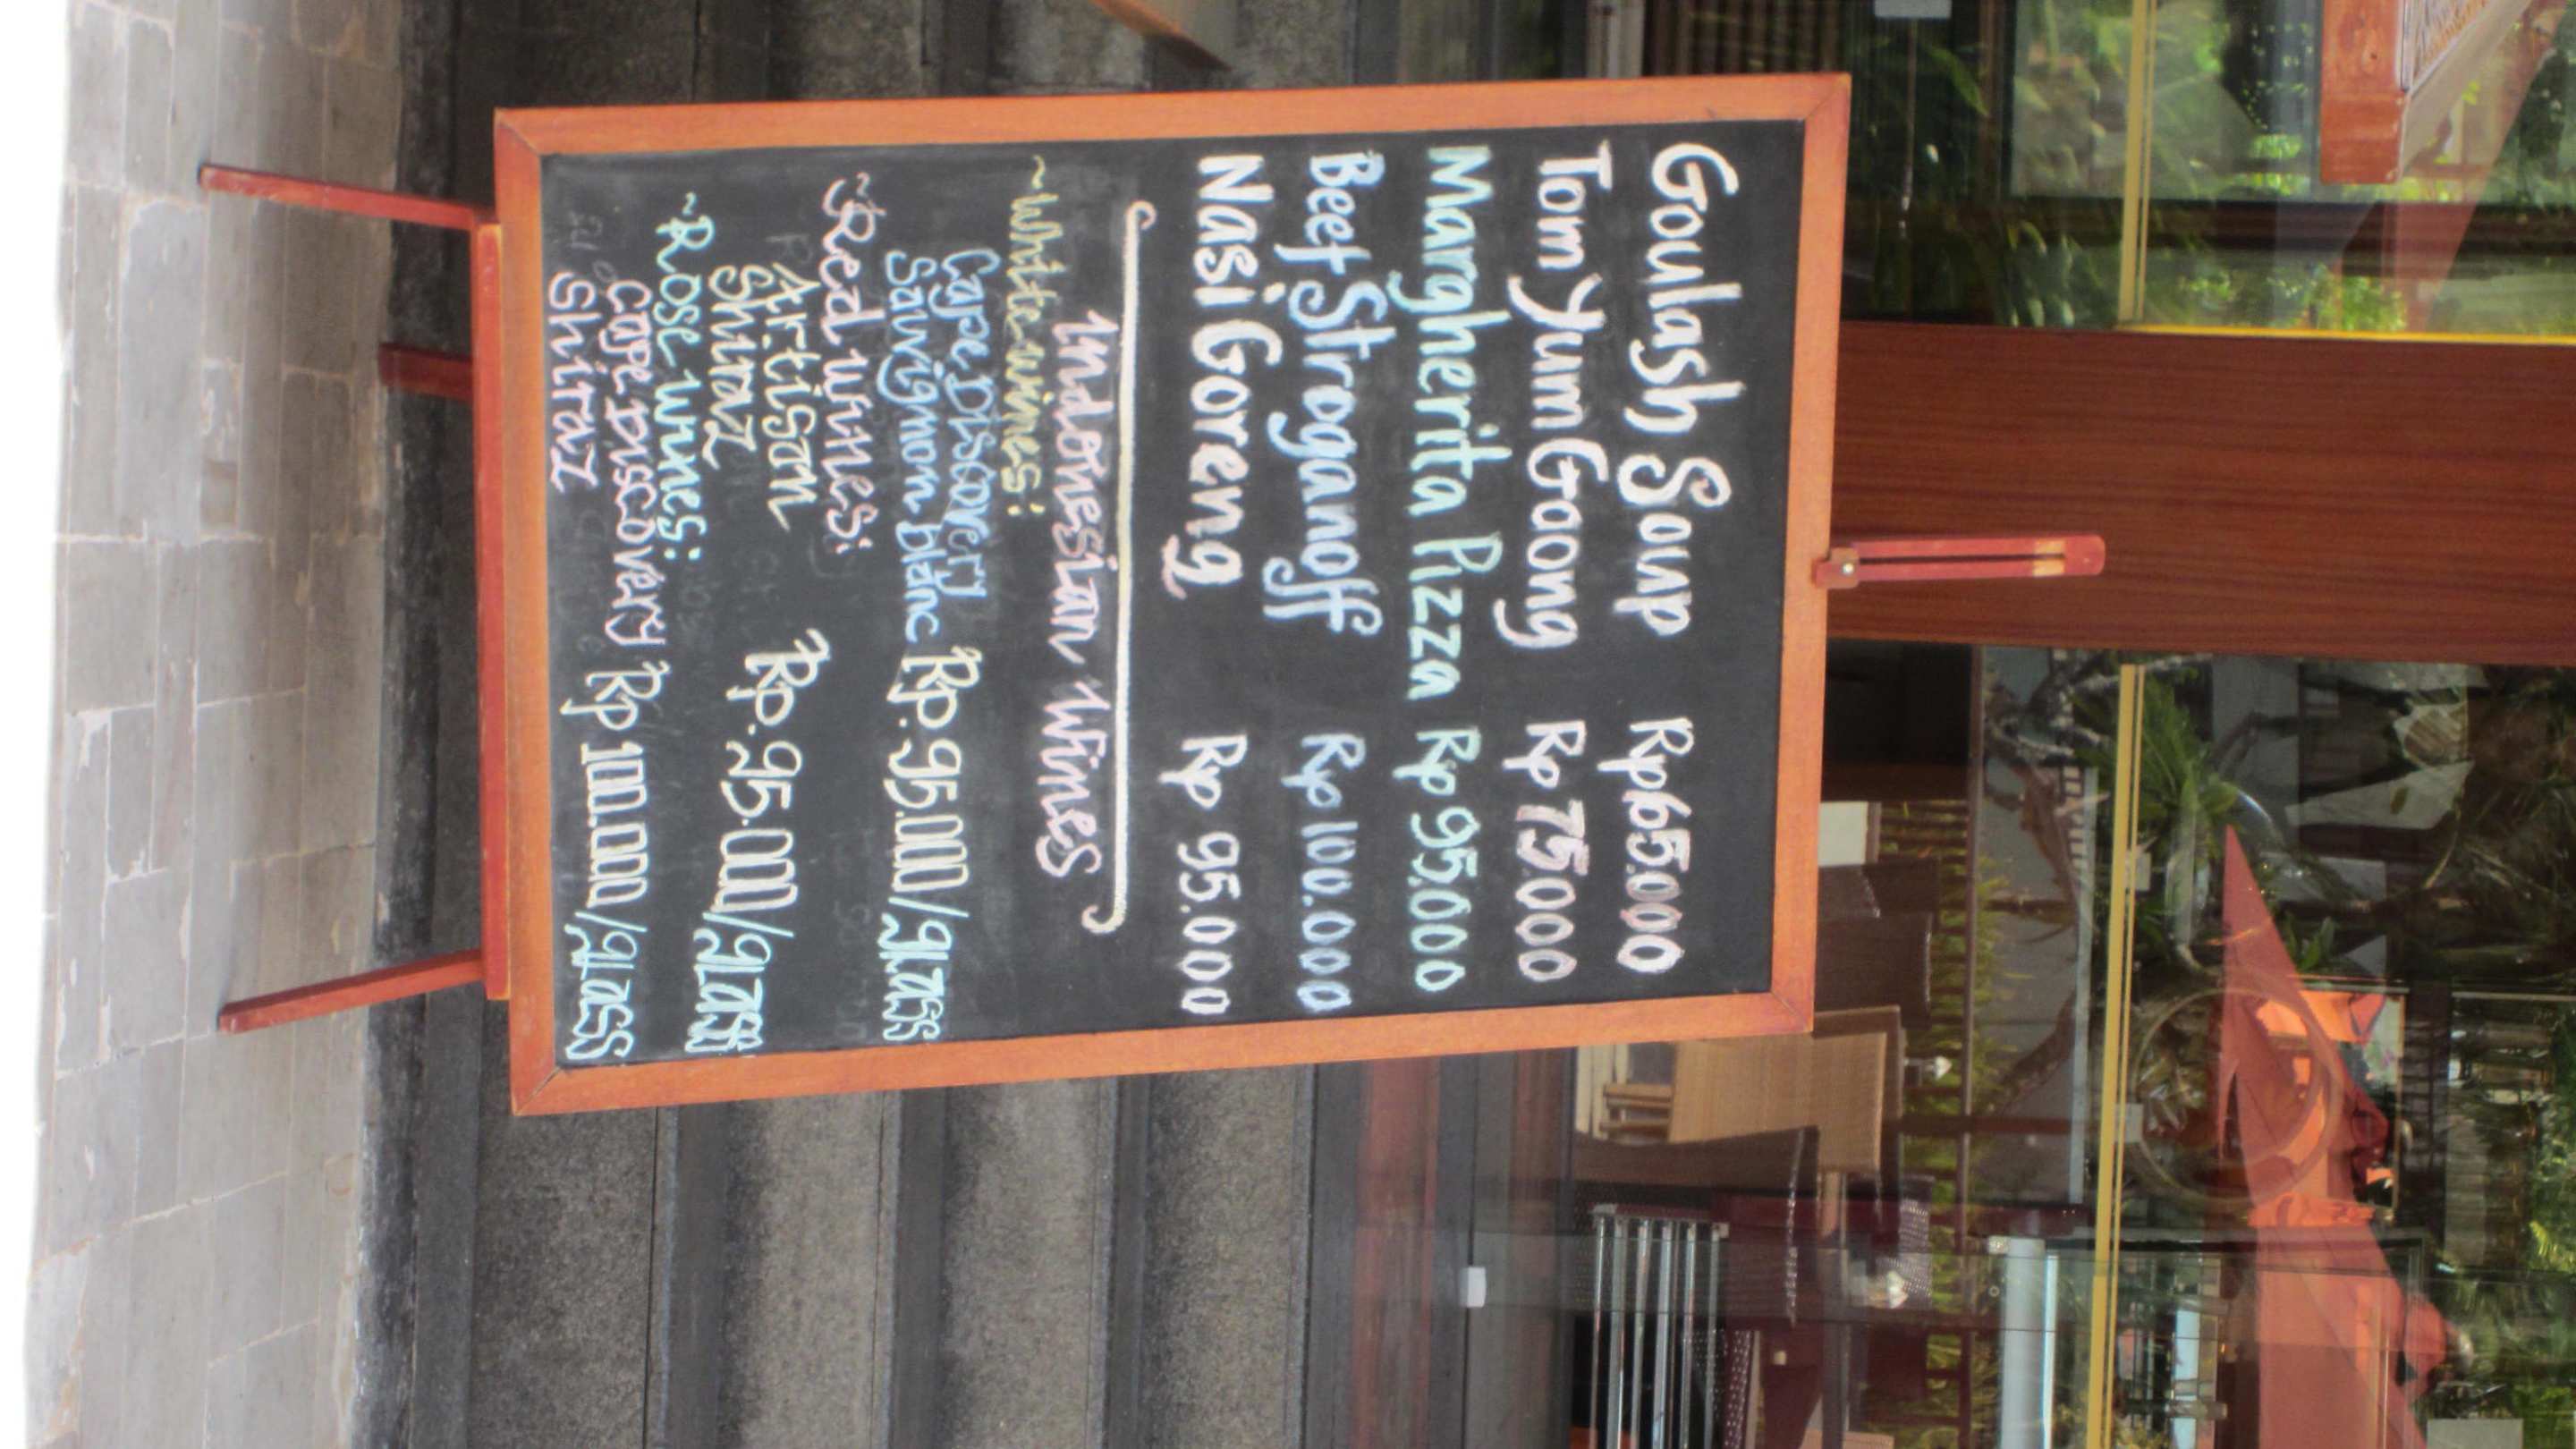 Goulash Soup Rp 65.000
Tom Yum Gaong Rp 75.000
Margherita Pizza Rp 95.000
Beef Stroganoff Rp 100.000
Nasi Goreng Rp 95.000
Indonesian Wines
~White wines:
Cape Discovery
Sauvignon blanc Rp. 95.000/glass
~Red wines:
Artisan
Shiraz Rp. 95.000/glass
~Rose wines:
Cape Discovery
Shiraz Rp 100.000/glass